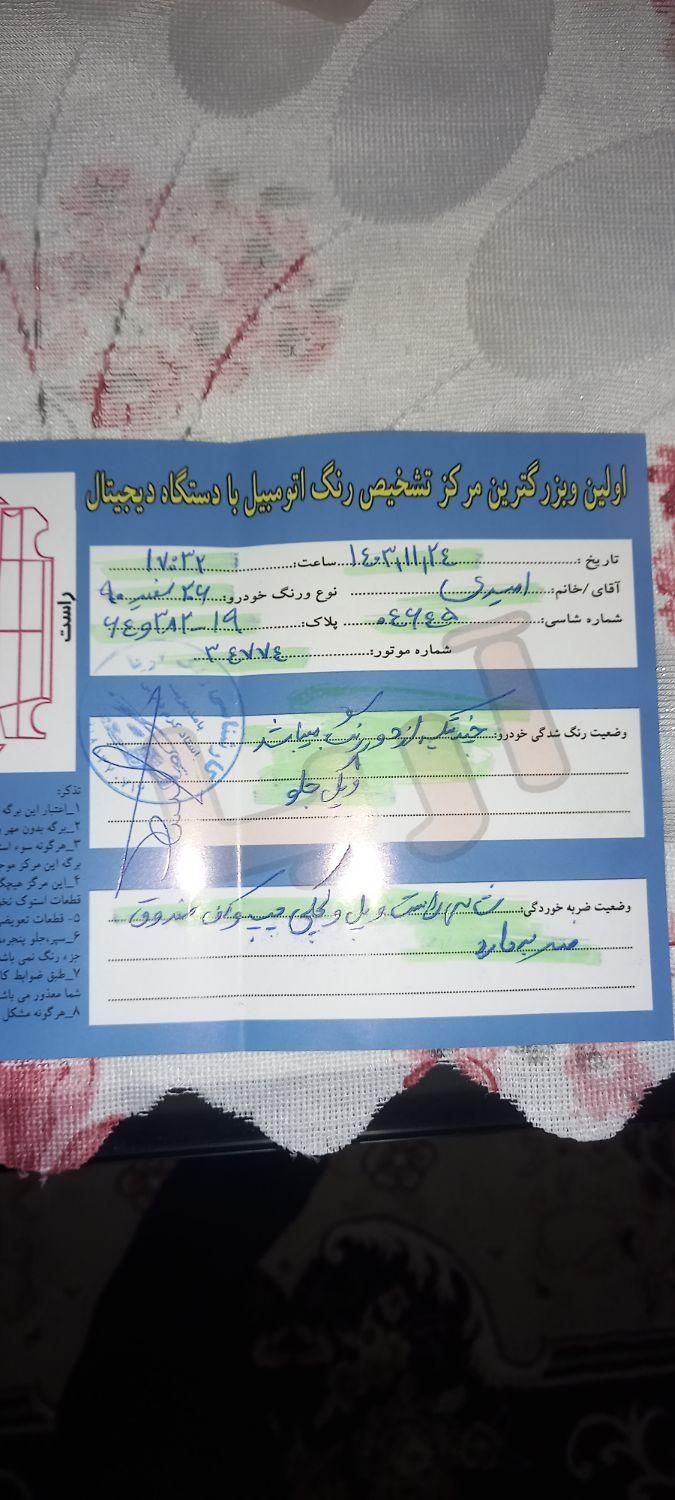 اولین وبزرگترین مرکز تشخیص رنگ اتومبیل با دستگاه دیجیتال
تاریخ: ۱۴۰۳،۱۱،۲۴ ساعت: ۱۷:۳۲
آقای/خانم: امیدی نوع ورنگ خودرو: ۲۰۶ سفید ۹۰
شماره شاسی: ۰۴۶۴۵ پلاک: ۶۴و۳۸۲-۱۹
شماره موتور: ۳۴۷۷۴
وضعیت رنگ شدگی خودرو: خودرو رنگ میباشد
جلو
وضعیت ضربه خوردگی: شاسی راست و چپ وکف صندوق
ضربه دارد
راست
تذکر:
۱_اعتبار این برگه
۲_برگه بدون مهر
۳_هرگونه سوء است
برگه این مرکز موج
۴_این مرکز هیچگ
قطعات استوک نخو
۵- قطعات تعویضی
۶_سپر،جلو پنجره
جزء رنگ نمی باشد
۷_طبق ضوابط کا
شما معذور می باش
۸_هرگونه مشکل